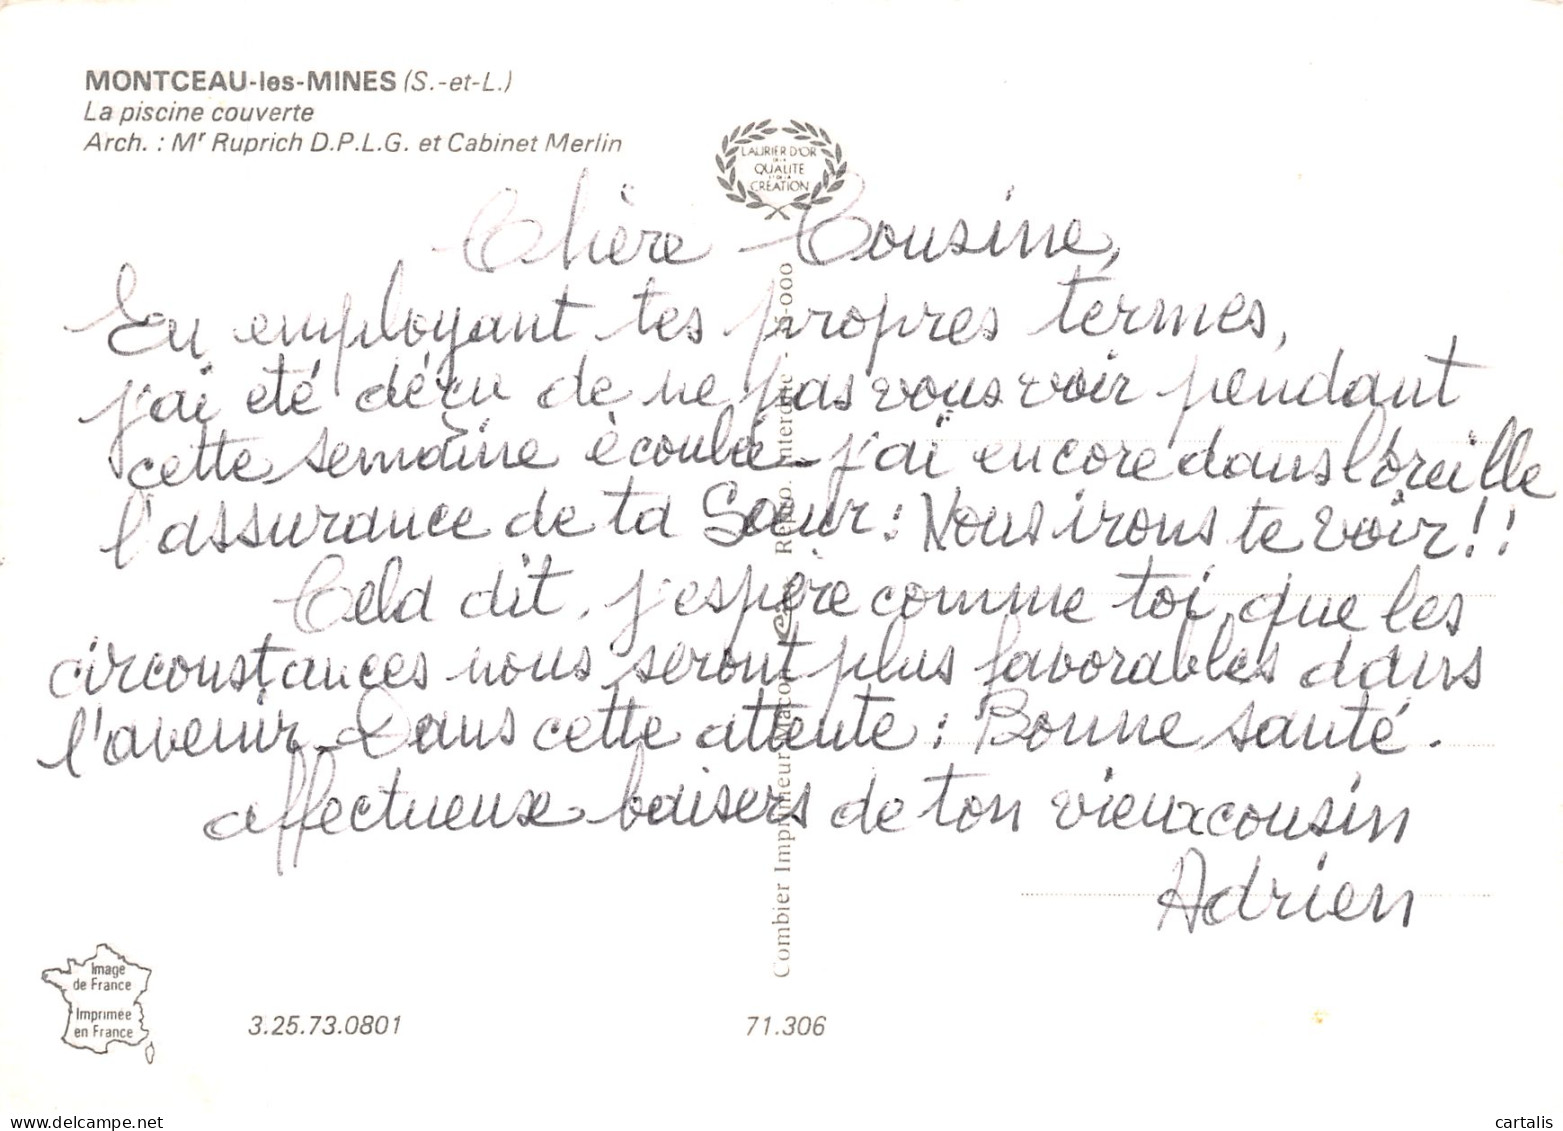 MONTCEAU-les-MINES (S.-et-L.)
La piscine couverte
Arch. : Mr Ruprich D.P.L.G. et Cabinet Merlin
LAURIER D'OR
DE LA
QUALITE
ET DE LA
CRÉATION
Chère Cousine,
En employant tes propres termes,
j'ai été déçu de ne pas vous voir pendant
cette semaine écoulée - j'ai encore dans l'oreille
l'assurance de ta Sœur : Nous irons te voir !!
Cela dit, j'espère comme toi, que les
circonstances nous seront plus favorables dans
l'avenir - Dans cette attente : Bonne santé.
affectueux baisers de ton vieux cousin
Adrien
Combier Imprimeur Macon
Repro. Interdite -
Image
de France
Imprimée
en France
3.25.73.0801
71.306
cartalis
www.delcampe.net